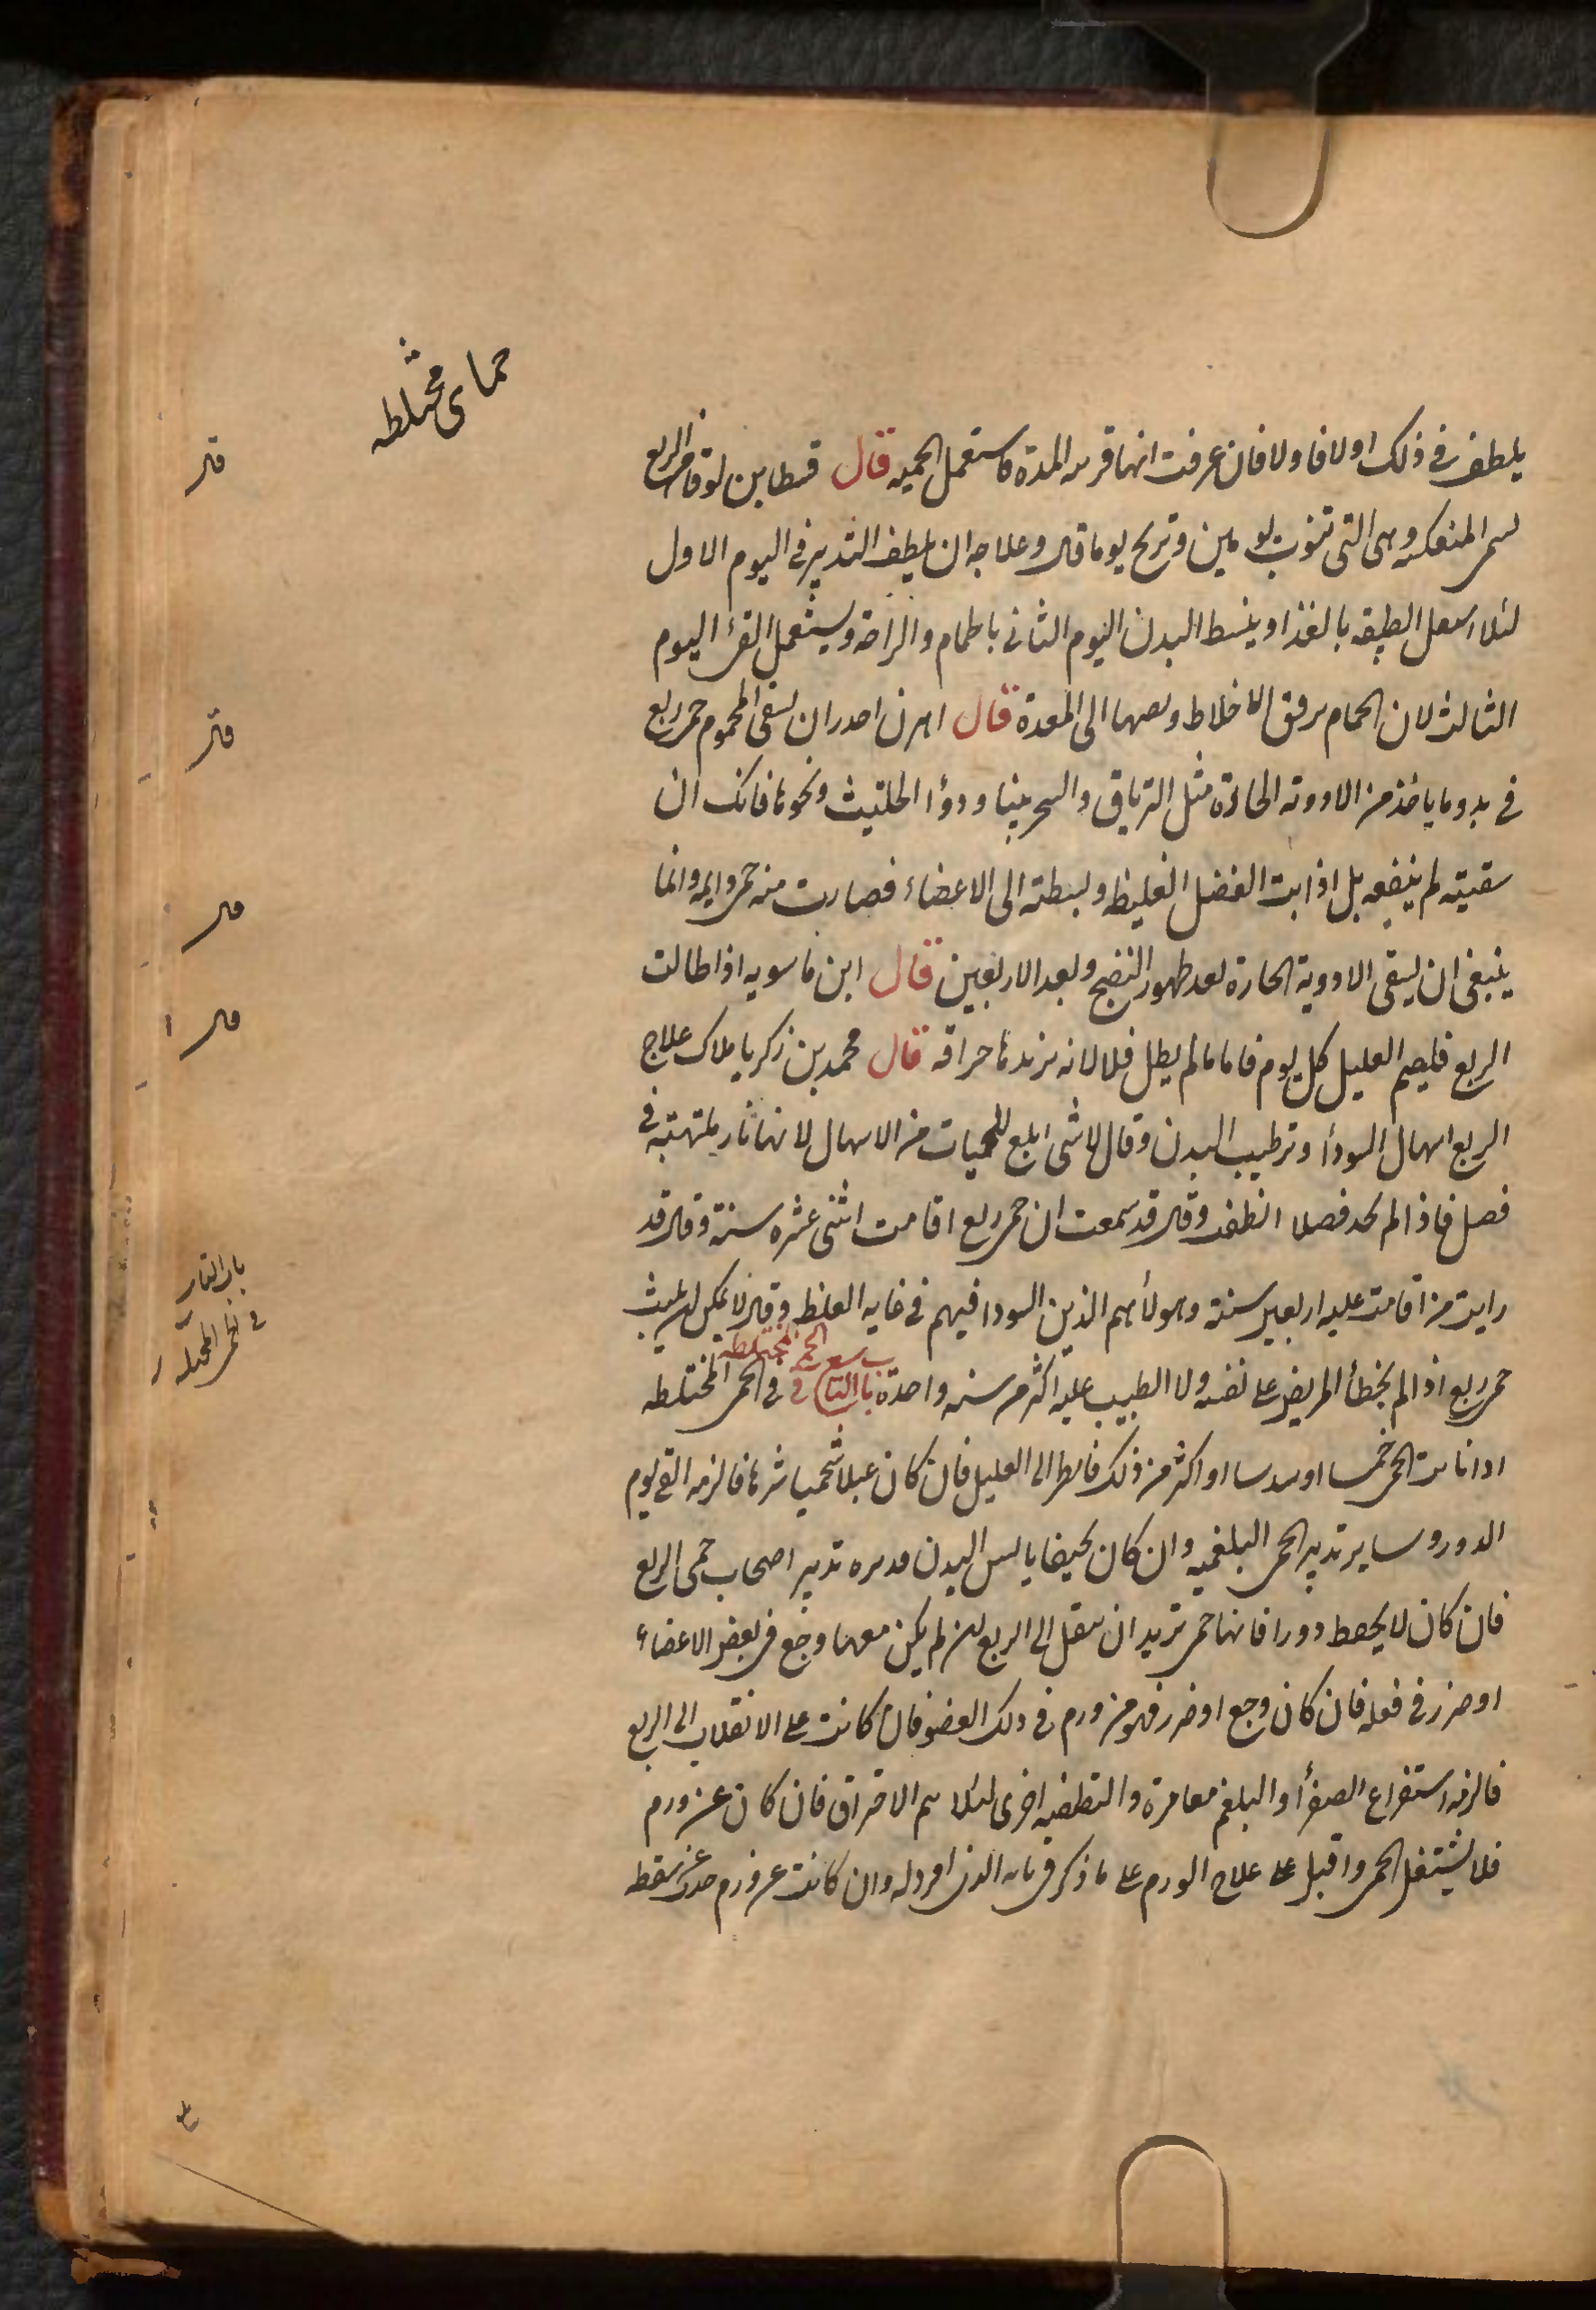 حمای مختلطه
یلطف فی ذلک اولا فاولا فان عرفت انها قریبه المدة فاستعمل الحمیه قال قسطا بن لوقا حمی الربع
المنعکسه وهی التی تنوب یومین وتریح یوما قال وعلاجه ان یلطف التدبیر فی الیوم الاول
لئلا الطبیعه بالغذا وینسط البدن الیوم الثانی بالحمام والراحة ویستعمل القئ الیوم
الثالث لان الحمام یرقق الاخلاط الی المعدة قال اهرن احذر ان یسقی المحموم حمی ربع
فی بدو ما یاخذ من الادویه الحادة مثل التریاق والسجزینا ودوأ الحلتیث ونحوها فانک ان
سقیته لم ینفعه بل اذابت الفضل الغلیظ وبسطته الی الاعضاء فصارت منه حمی دایمه وانما
ینبغی ان یسقی الادویة الحارة بعد ظهور النضج وبعد الاربعین قال ابن ماسویه اذا طالت
الربع فلیصم العلیل کل یوم فاما مالم یطل فلا لانه یزیدها حراقه قال محمد بن زکریا ملاک علاج
الربع اسهال السودأ وترطیب البدن وقال لا شی ابلغ للحمیات من الاسهال لانها نار ملتهبة فی
فصل فاذا لم تجد فصلا انطفت وقال قد سمعت ان حمی ربع اقامت اثنی عشره سنة وقال قد
رایت من اقامت علیه اربعین سنة وهولأ هم الذین السودا فیهم فی غایه الغلظ وقال لا یمکن ان یلبث
حمی ربع اذا لم یخطأ المریض علی نفسه ولا الطبیب علیه اکثر من سنه واحدة باب التاسع فی الحمی المختلطه
اذا نابت الحمی خمسا او سدسا او اکثر من ذلک فانظر الی العلیل فان کان عبلا شحمیا شرها فالزمه القئ یوم
الدور وسایر تدبیر الحمی البلغمیه وان کان نحیفا یابس البدن فدبره تدبیر اصحاب حمی الربع
فان کان لا یحفظ دورا فانها حمی ترید ان تنتقل الی الربع ان لم یکن معها وجع فی بعض الاعضاء
او ضرر فی فعله فان کان وجع او ضرر فهو من ورم فی ذلک العضو فان کانت علی الانقلاب الی الربع
فالزمه استفراغ الصفرأ والبلغم معا مرة والتطفیه اخری لئلا یتم الاحتراق فان کان عن ورم
فلا تشتغل بالحمی واقبل علی علاج الورم علی ما ذکر فی بابه الذی افرد له وان کانت عن ورم حدث عن سقطه
قال
قال
قال
قال
باب التاسع
فی الحمی المختلطه